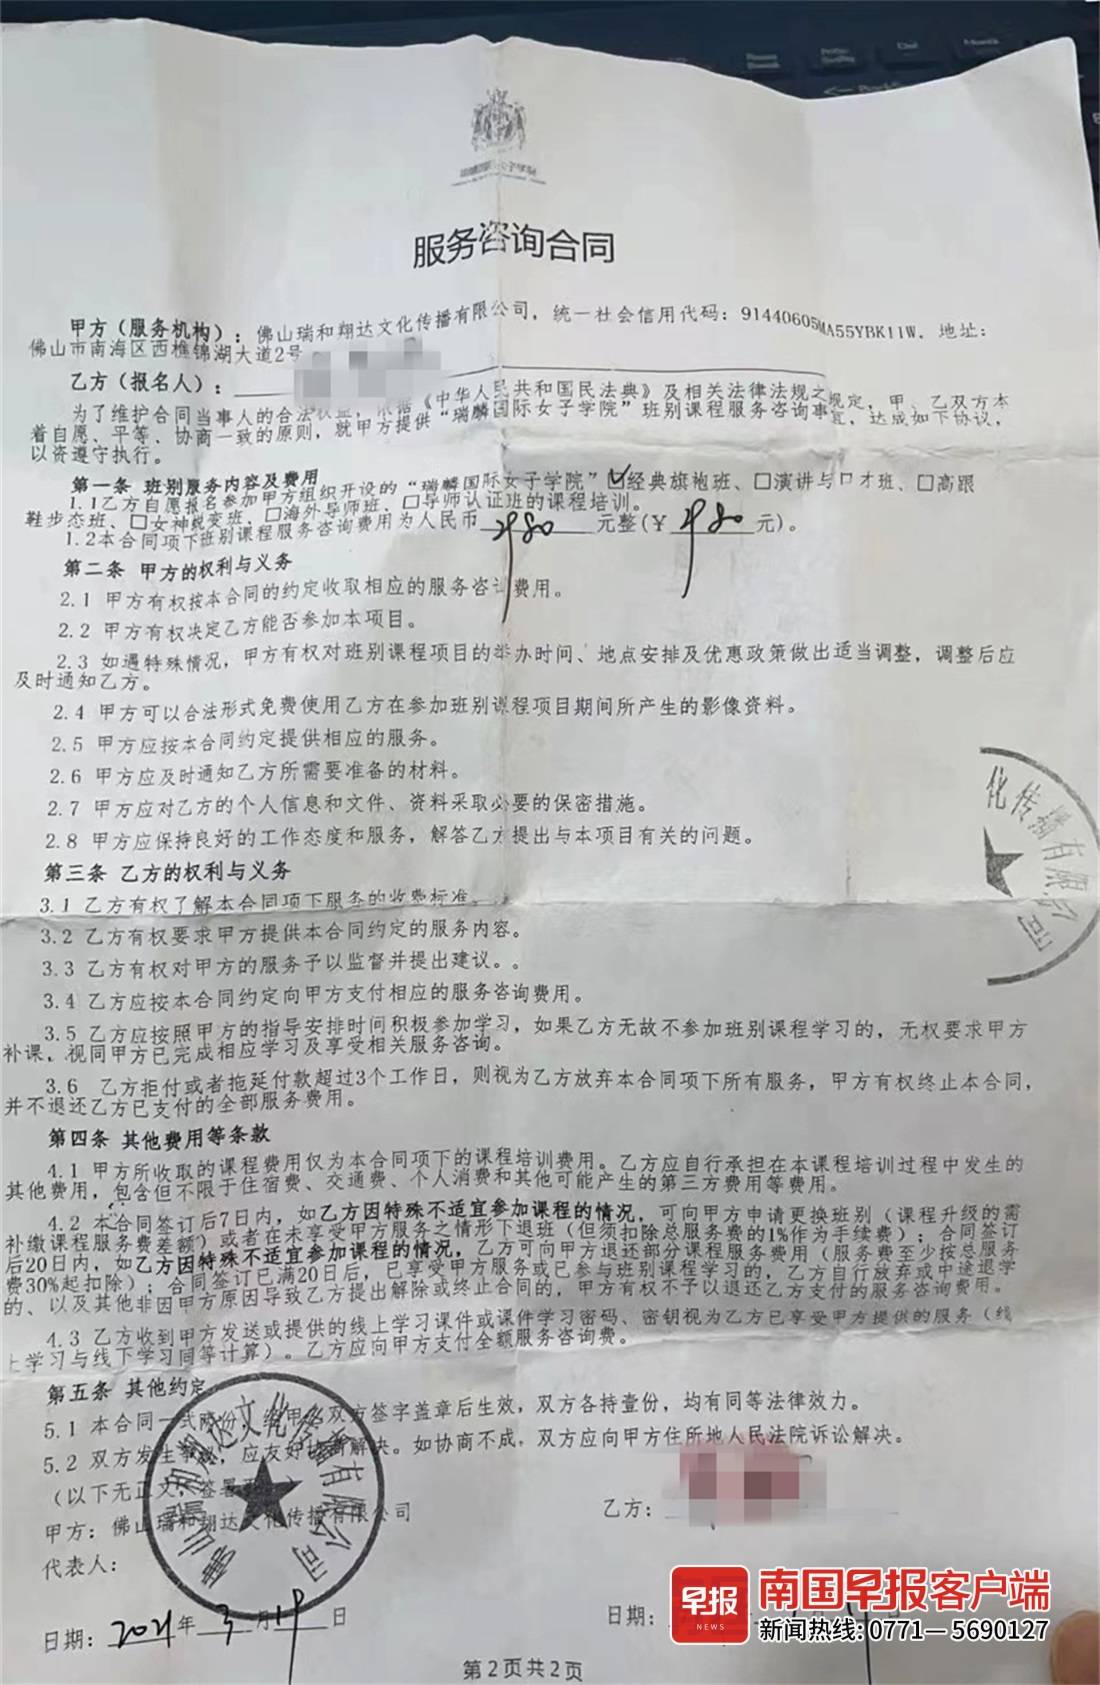 服务咨询合同
甲方（服务机构）：佛山瑞和翔达文化传播有限公司，统一社会信用代码：91440605MA55YBK11W，地址：
佛山市南海区西樵锦湖大道2号
乙方（报名人）：
为了维护合同当事人的合法权益，依据《中华人民共和国民法典》及相关法律法规之规定，甲、乙双方本
着自愿、平等、协商一致的原则，就甲方提供“瑞麟国际女子学院”班别课程服务咨询事宜，达成如下协议，
以资遵守执行。
第一条 班别服务内容及费用
1.1乙方自愿报名参加甲方组织开设的“瑞麟国际女子学院”☑经典旗袍班、□演讲与口才班、□高跟
鞋步态班、□女神蜕变班、□海外导师班、□导师认证班的课程培训。
1.2本合同项下班别课程服务咨询费用为人民币 元整(￥ 元)。
第二条 甲方的权利与义务
2.1 甲方有权按本合同的约定收取相应的服务咨询费用。
2.2 甲方有权决定乙方能否参加本项目。
2.3 如遇特殊情况，甲方有权对班别课程项目的举办时间、地点安排及优惠政策做出适当调整，调整后应
及时通知乙方。
2.4 甲方可以合法形式免费使用乙方在参加班别课程项目期间所产生的影像资料。
2.5 甲方应按本合同约定提供相应的服务。
2.6 甲方应及时通知乙方所需要准备的材料。
2.7 甲方应对乙方的个人信息和文件、资料采取必要的保密措施。
2.8 甲方应保持良好的工作态度和服务，解答乙方提出与本项目有关的问题。
化传播有限公司
第三条 乙方的权利与义务
3.1 乙方有权了解本合同项下服务的收费标准。
3.2 乙方有权要求甲方提供本合同约定的服务内容。
3.3 乙方有权对甲方的服务予以监督并提出建议。。
3.4 乙方应按本合同约定向甲方支付相应的服务咨询费用。
3.5 乙方应按照甲方的指导安排时间积极参加学习，如果乙方无故不参加班别课程学习的，无权要求甲方
补课，视同甲方已完成相应学习及享受相关服务咨询。
3.6 乙方拒付或者拖延付款超过3个工作日，则视为乙方放弃本合同项下所有服务，甲方有权终止本合同，
并不退还乙方已支付的全部服务费用。
第四条 其他费用等条款
4.1 甲方所收取的课程费用仅为本合同项下的课程培训费用。乙方应自行承担在本课程培训过程中发生的
其他费用，包含但不限于住宿费、交通费、个人消费和其他可能产生的第三方费用等费用。
4.2 本合同签订后7日内，如乙方因特殊不适宜参加课程的情况，可向甲方申请更换班别（课程升级的需
补缴课程服务费差额）或者在未享受甲方服务之情形下退班（但须扣除总服务费的1%作为手续费）；合同签订
后20日内，如乙方因特殊不适宜参加课程的情况，乙方可向甲方退还部分课程服务费用（服务费至少按总服务
费30%起扣除）；合同签订已满20日后，已享受甲方服务或已参与班别课程学习的，乙方自行放弃或中途退学
的、以及其他非因甲方原因导致乙方提出解除或终止合同的，甲方有权不予以退还乙方支付的服务咨询费用。
4.3 乙方收到甲方发送或提供的线上学习课件或课件学习密码、密钥视为乙方已享受甲方提供的服务（线
上学习与线下学习同等计算）。乙方应向甲方支付全额服务咨询费。
第五条 其他约定
5.1 本合同一式两份，经甲乙双方签字盖章后生效，双方各持壹份，均有同等法律效力。
5.2 双方发生争议，应友好协商解决。如协商不成，双方应向甲方住所地人民法院诉讼解决。
（以下无正文，签署
甲方：佛山瑞和翔达文化传播有限公司
乙方：
代表人：
佛山瑞和翔达文化传播有限公司
日期：2021年3月19日
日期：
第2页共2页
早报
NEWS
南国早报客户端
新闻热线：0771—5690127